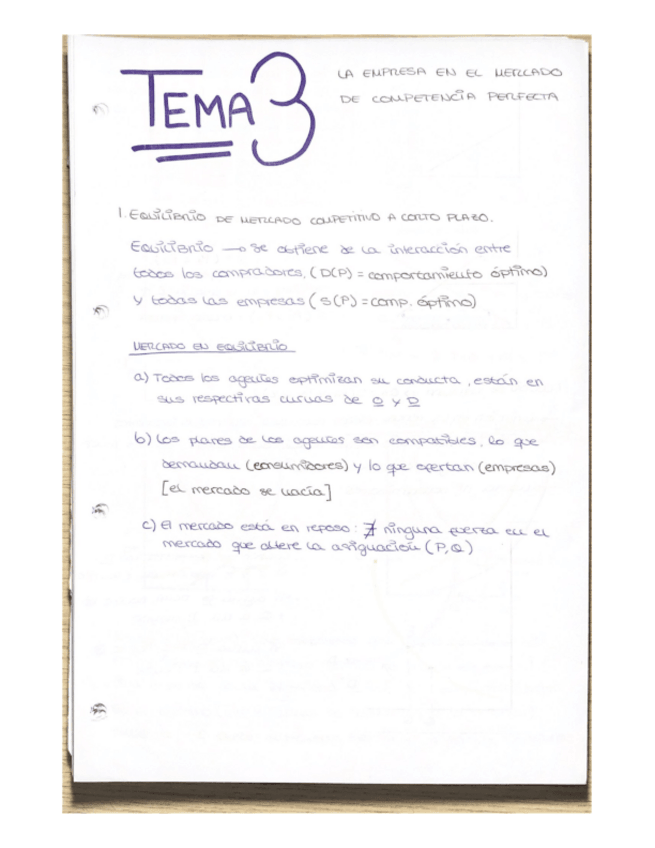 TEMA 3
LA EMPRESA EN EL MERCADO
DE COMPETENCIA PERFECTA
1. EQUILIBRIO DE MERCADO COMPETITIVO A CORTO PLAZO.
EQUILIBRIO → Se obtiene de la interacción entre
todos los compradores, (D(P) = comportamiento óptimo)
y todas las empresas (S(P) = comp. óptimo)
MERCADO EN EQUILIBRIO
a) Todos los agentes optimizan su conducta, están en
sus respectivas curvas de O y D
b) Los planes de los agentes son compatibles, lo que
demandan (consumidores) y lo que ofertan (empresas)
[el mercado se vacía]
c) El mercado está en reposo: ∄ ninguna fuerza en el
mercado que altere la asignación (P,Q)